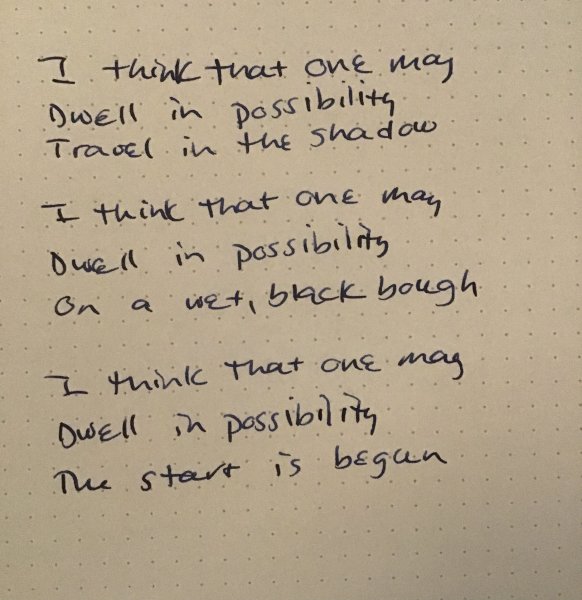 I think that one may
Dwell in possibility
Travel in the shadow
I think that one may
Dwell in possibility
On a wet, black bough
I think that one may
Dwell in possibility
The start is begun